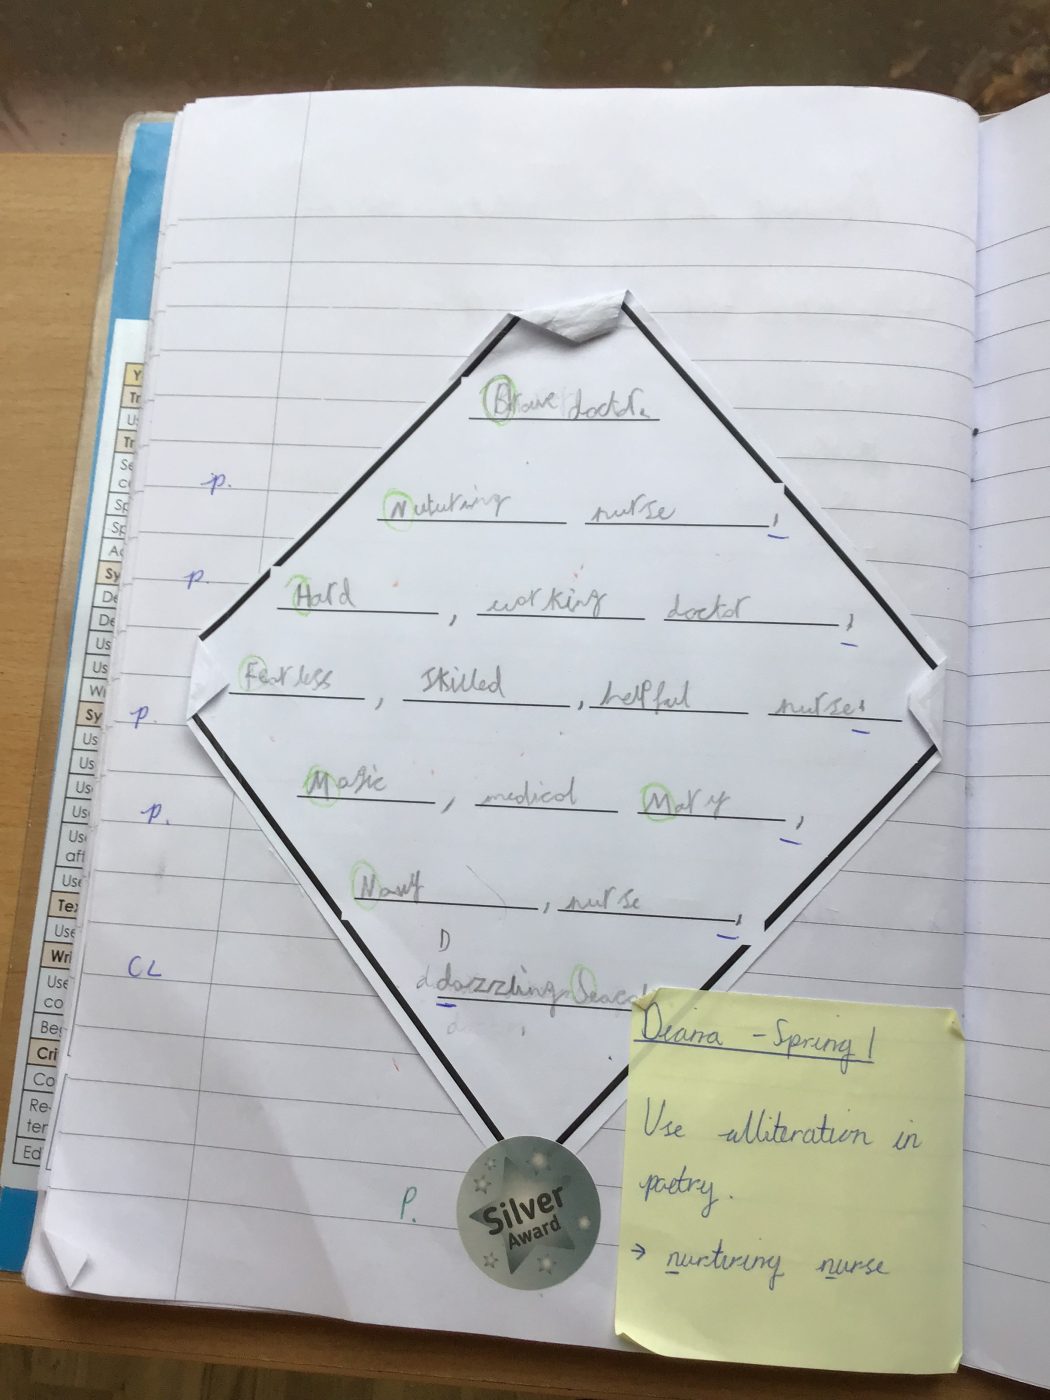 Brave doctor.
p.
Nuturing nurse,
p.
Hard, working doctor,
Fearless, skilled, helpful nurse,
p.
Magic, medical Mary,
p.
Navy, nurse,
D
CL
dazzling
Silver
Award
P.
Deana - Spring 1
Use alliteration in
poetry.
→ nurturing nurse
Y
Tr
U
Tr
Se
c
Sp
Sp
A
Sy
De
De
Us
Us
W
Sy
Us
Us
Us
Us
Us
aff
Use
Te
Use
Wri
Use
co
Be
Cri
Co
Re-
ter
Ed